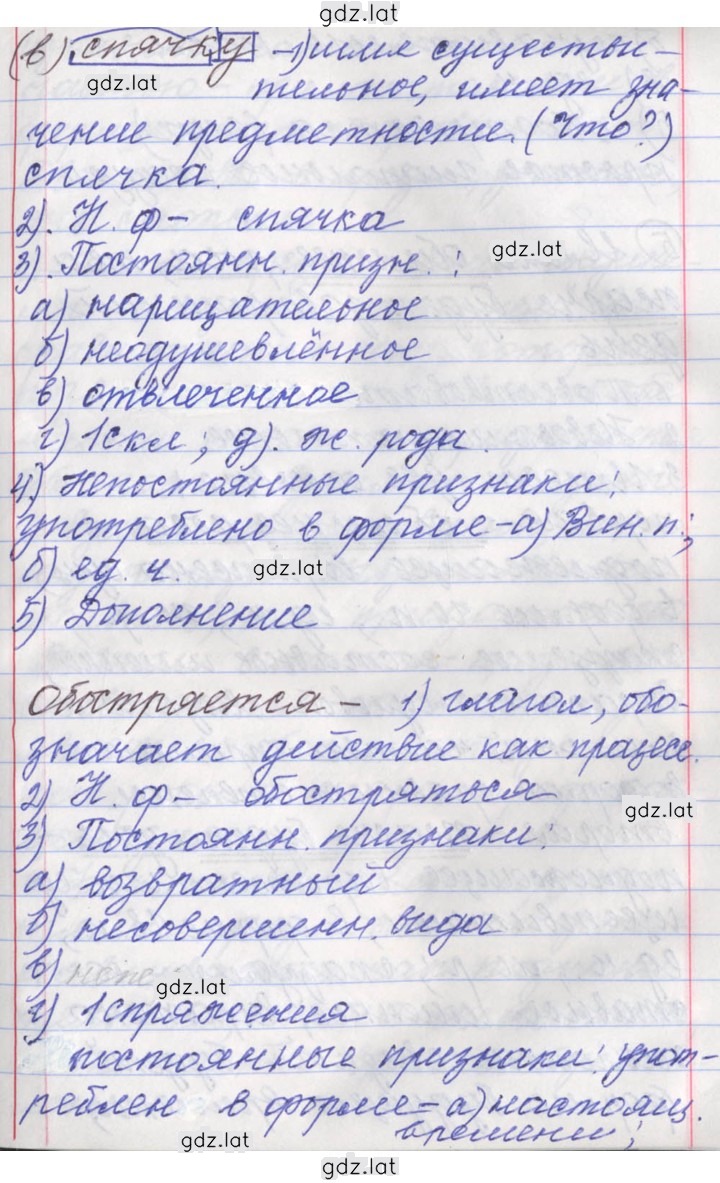 gdz.lat
(в) спячку – 1) имя существи-
gdz.lat
тельное, имеет зна-
чение предметности. (Что?)
спячка.
2). Н. ф – спячка
gdz.lat
3). Постоянн. призн. :
а) нарицательное
б) неодушевлённое
в) отвлеченное
г) 1 скл ; д). ж. рода.
4.) Непостоянные признаки:
употреблено в форме – а) Вин. п.;
б) ед. ч.
gdz.lat
5) Дополнение
Обостряется – 1) глагол, обо-
значает действие как процесс.
2) Н. ф – обостряться
gdz.lat
3) Постоянн. признаки:
а) возвратный
б) несовершенн. вида
в)
gdz.lat
г) 1 спряжения
постоянные признаки: упот-
реблен в форме – а) настоящ.
времени ;
gdz.lat
gdz.lat